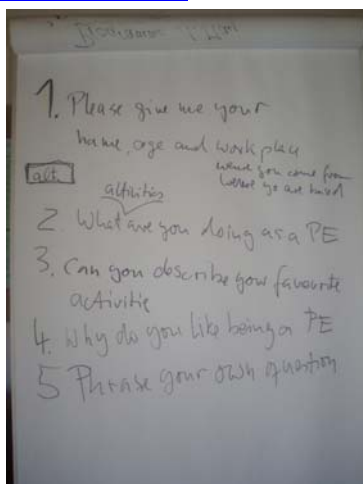 1. Please give me your
name, age and work place
where you come from
where yo are based
alt.
activities
2 What are you doing as a PE
3. Can you describe your favourite
activitie
4. Why do you like being a PE
5 Phrase your own question